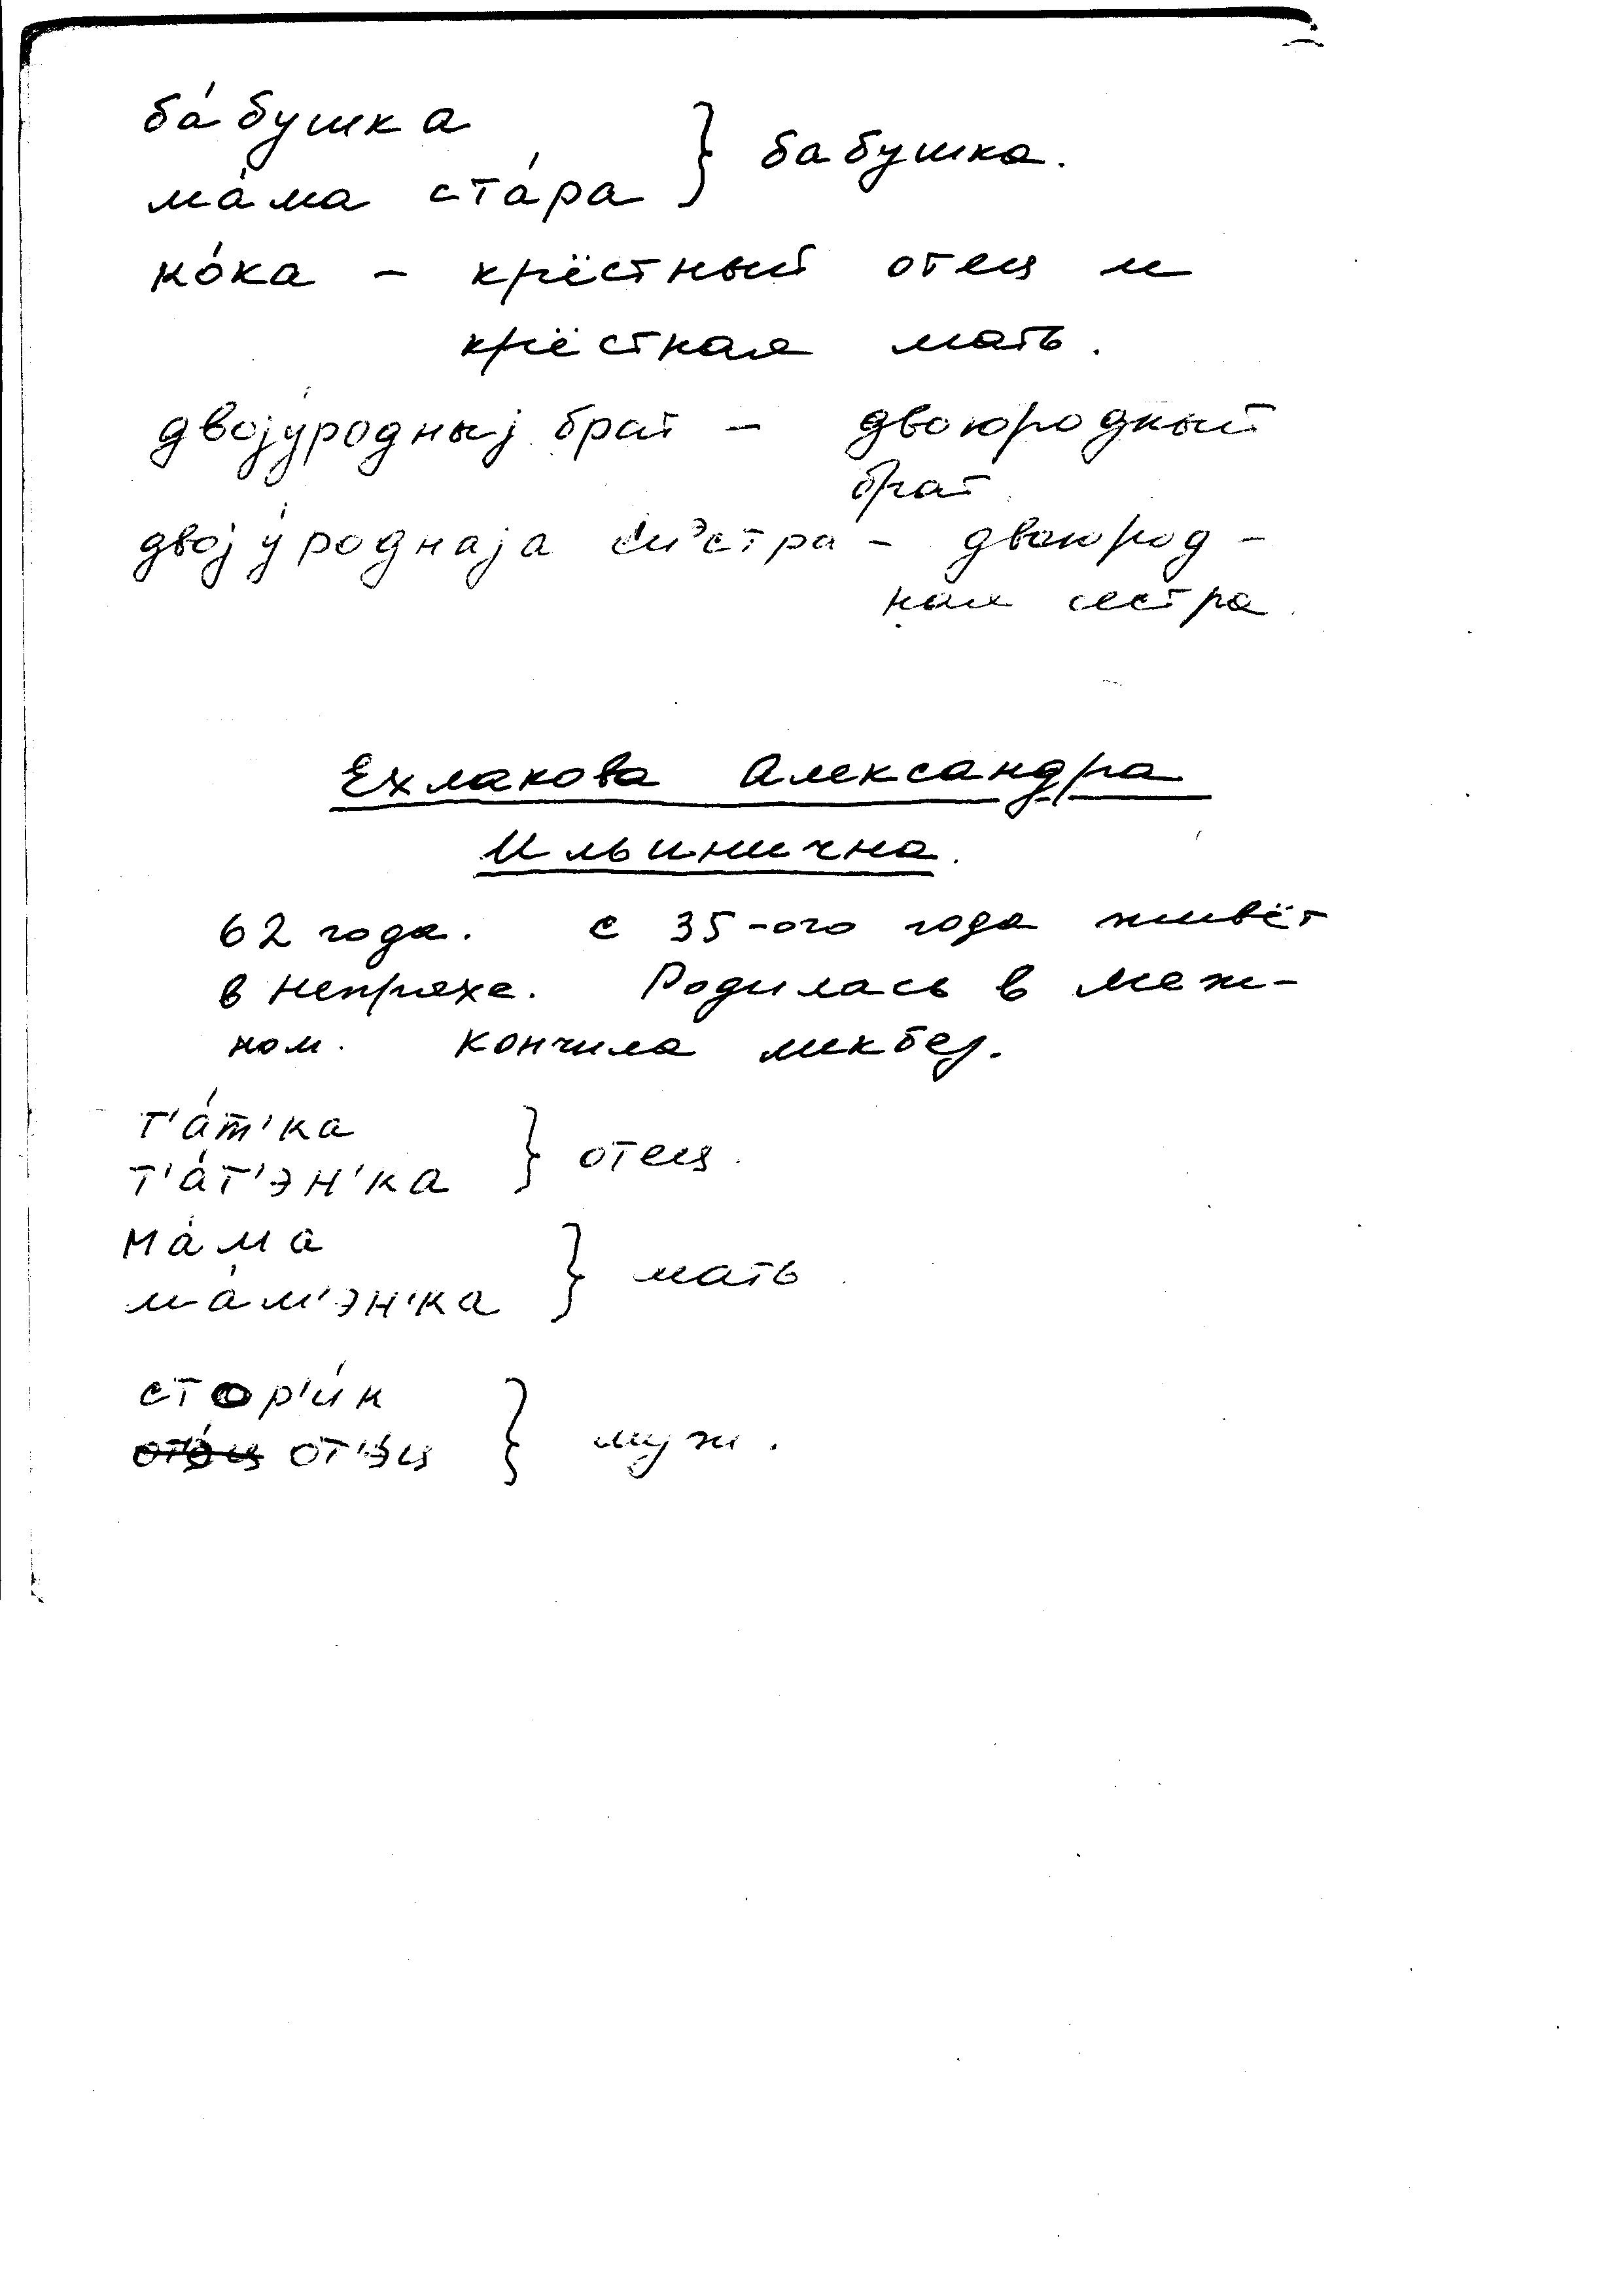 ба́бушка
ма́ма ста́ра } бабушка.
ко́ка – крёстный отец и
крёстная мать.
двоју́родныј брат – двоюродный
брат
двоју́роднаја с'иэстра – двоюрод-
ная сестра.
Ехлакова Александра
Ильинична.
62 года. с 35-ого года живёт
в Непряхе. Родилась в Меж-
ном. Кончила ликбез.
т'а́т'ка
т'а́т'эн'ка } отец.
ма́ма
ма́м'эн'ка } мать.
стор'и́к
от'э́ц } муж.